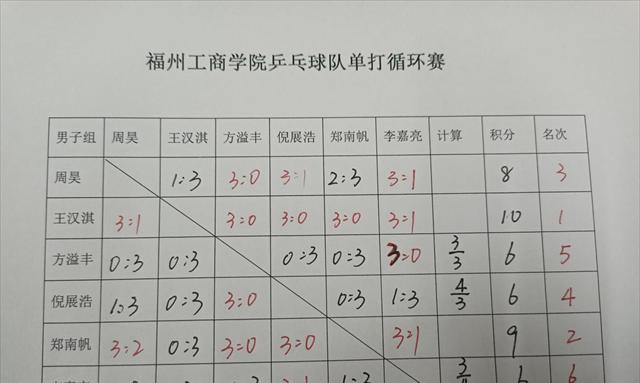 福州工商学院乒乓球队单打循环赛
男子组 周昊 王汉淇 方溢丰 倪展浩 郑南帆 李嘉亮 计算 积分 名次
周昊 1:3 3:0 3:1 2:3 3:1 8 3
王汉淇 3:1 3:0 3:0 3:0 3:1 10 1
方溢丰 0:3 0:3 0:3 0:3 3:0 3/3 6 5
倪展浩 1:3 0:3 3:0 0:3 1:3 4/3 6 4
郑南帆 3:2 0:3 3:0 3:0 3:1 9 2